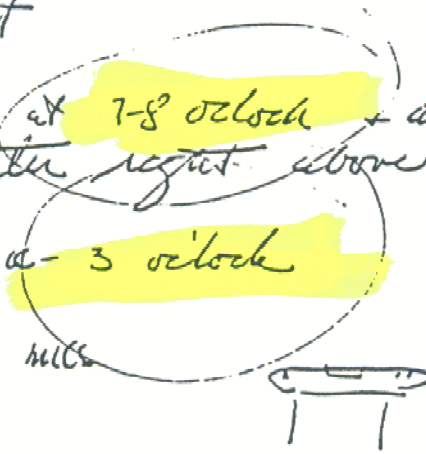 at 7-8 oclock +
the right above
a- 3 o'clock